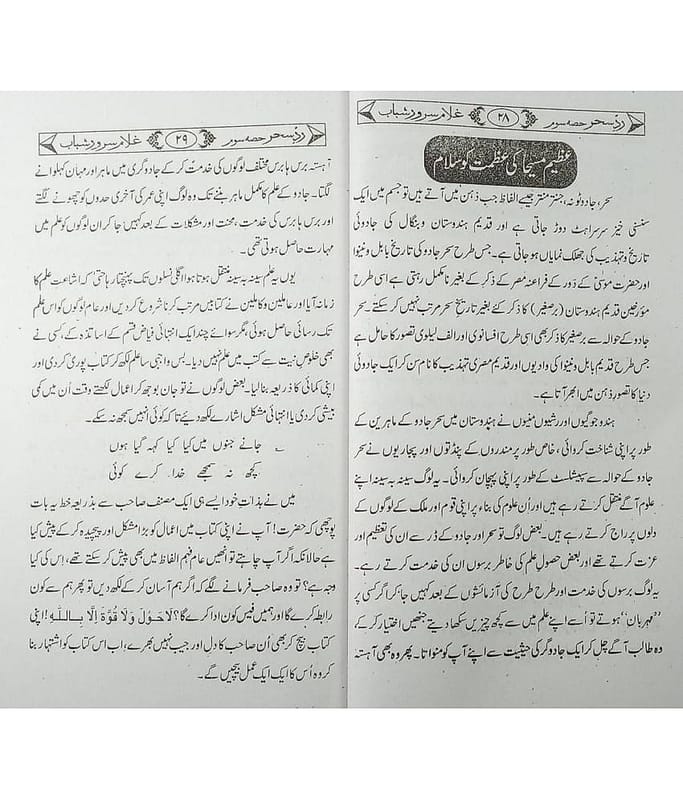 ردِّ سحر حصہ سوم ۲۸ غلام سرور شباب
عظیم مسیحا کی عظمت کو سلام
سحر، جادو ٹونہ، جنتر منتر جیسے الفاظ جب ذہن میں آتے ہیں تو جسم میں ایک
سنسنی خیز سرسراہٹ دوڑ جاتی ہے اور قدیم ہندوستان و بنگال کی جادوئی
تاریخ و تہذیب کی جھلک نمایاں ہو جاتی ہے۔ جس طرح سحر جادو کی تاریخ بابل و نینوا
اور حضرت موسیٰؑ کے دَور کے فراعنہ مصر کے ذکر کے بغیر نامکمل رہتی ہے اسی طرح
مؤرخین قدیم ہندوستان (برصغیر) کا ذکر کئے بغیر تاریخ سحر مرتب نہیں کر سکتے سحر
جادو کے حوالہ سے برصغیر کا ذکر بھی اسی طرح افسانوی اور الف لیلوی تصور کا حامل ہے
جس طرح قدیم بابل و نینوا کی وادیوں اور قدیم مصری تہذیب کا نام سن کر ایک جادوئی
دنیا کا تصور ذہن میں ابھر آتا ہے۔
ہندو جوگیوں اور رشیوں منیوں نے ہندوستان میں سحر جادو کے ماہرین کے
طور پر اپنی شناخت کروائی، خاص طور پر مندروں کے پنڈتوں اور پجاریوں نے سحر
جادو کے حوالہ سے سپیشلسٹ کے طور پر اپنی پہچان کروائی۔ یہ لوگ سینہ بہ سینہ اپنے
علوم آگے منتقل کرتے رہے ہیں اور اُن علوم کی بناء پر اپنی قوم اور ملک کے لوگوں کے
دلوں پر راج کرتے رہے ہیں۔ بعض لوگ تو سحر اور جادو کے ڈر سے ان کی تعظیم اور
عزت کرتے تھے اور بعض حصولِ علم کی خاطر برسوں ان کی خدمت کرتے رہے۔
یہ لوگ برسوں کی خدمت اور طرح طرح کی آزمائشوں کے بعد کہیں جا کر اگر کسی پر
”مہربان“ ہوتے تو اُسے اپنے علم میں سے کچھ چیزیں سکھا دیتے جنھیں اختیار کر کے،
وہ طالب آگے چل کر ایک جادوگر کی حیثیت سے اپنے آپ کو منواتا۔ پھر وہ بھی آہستہ
ردِّ سحر حصہ سوم ۲۹ غلام سرور شباب
آہستہ برس ہا برس مختلف لوگوں کی خدمت کر کے جادوگری میں ماہر اور مہان کہلوانے
لگتا۔ جادو کے علم کا مکمل ماہر بننے تک وہ لوگ اپنی عمر کی آخری حدوں کو چھونے لگتے
اور برس ہا برس کی خدمت، محنت اور مشکلات کے بعد کہیں جا کر ان لوگوں کو علم میں
مہارت حاصل ہوتی تھی۔
یوں یہ علم سینہ بہ سینہ منتقل ہوتا ہوا اگلی نسلوں تک پہنچتا رہا حتیٰ کہ اشاعت علم کا
زمانہ آیا اور عاملین و کاملین نے کتابیں مرتب کرنا شروع کر دیں اور عام لوگوں کو اس علم
تک رسائی حاصل ہوئی، مگر سوائے چند ایک انتہائی فیاض قسم کے اساتذہ کے، کسی نے
بھی خلوصِ نیت سے کتب میں علم نہیں دیا۔ بس واجبی سا علم لکھ کر کتاب پوری کر دی اور
اپنی کمائی کا ذریعہ بنا لیا۔ بعض لوگوں نے تو جان بوجھ کر اعمال لکھتے وقت اُن میں کمی
بیشی کر دی یا انتہائی مشکل اشارے لکھ دیئے تاکہ کوئی انہیں سمجھ نہ سکے۔
؎ جانے جنوں میں کیا کیا کہہ گیا ہوں
کچھ نہ سمجھے خدا کرے کوئی
میں نے بذاتِ خود ایسے ہی ایک مصنف صاحب سے بذریعہ خط یہ بات
پوچھی کہ حضرت! آپ نے اپنی کتاب میں اعمال کو بڑا مشکل اور پیچیدہ کر کے پیش کیا
ہے حالانکہ اگر آپ چاہتے تو انھیں عام فہم الفاظ میں بھی پیش کر سکتے تھے، اِس کی کیا
وجہ ہے؟ تو وہ صاحب فرمانے لگے کہ اگر ہم آسان کر کے لکھ دیں تو پھر ہم سے کون
رابطہ کرے گا اور ہمیں فیس کون ادا کرے گا؟ لَا حَوْلَ وَلَا قُوَّةَ اِلَّا بِاللّٰهِ! اپنی
کتاب بیچ کر بھی اُن صاحب کا دل اور جیب نہیں بھرے، اب اس کتاب کو اشتہار بنا
کر وہ اُس کا ایک ایک عمل بیچیں گے۔